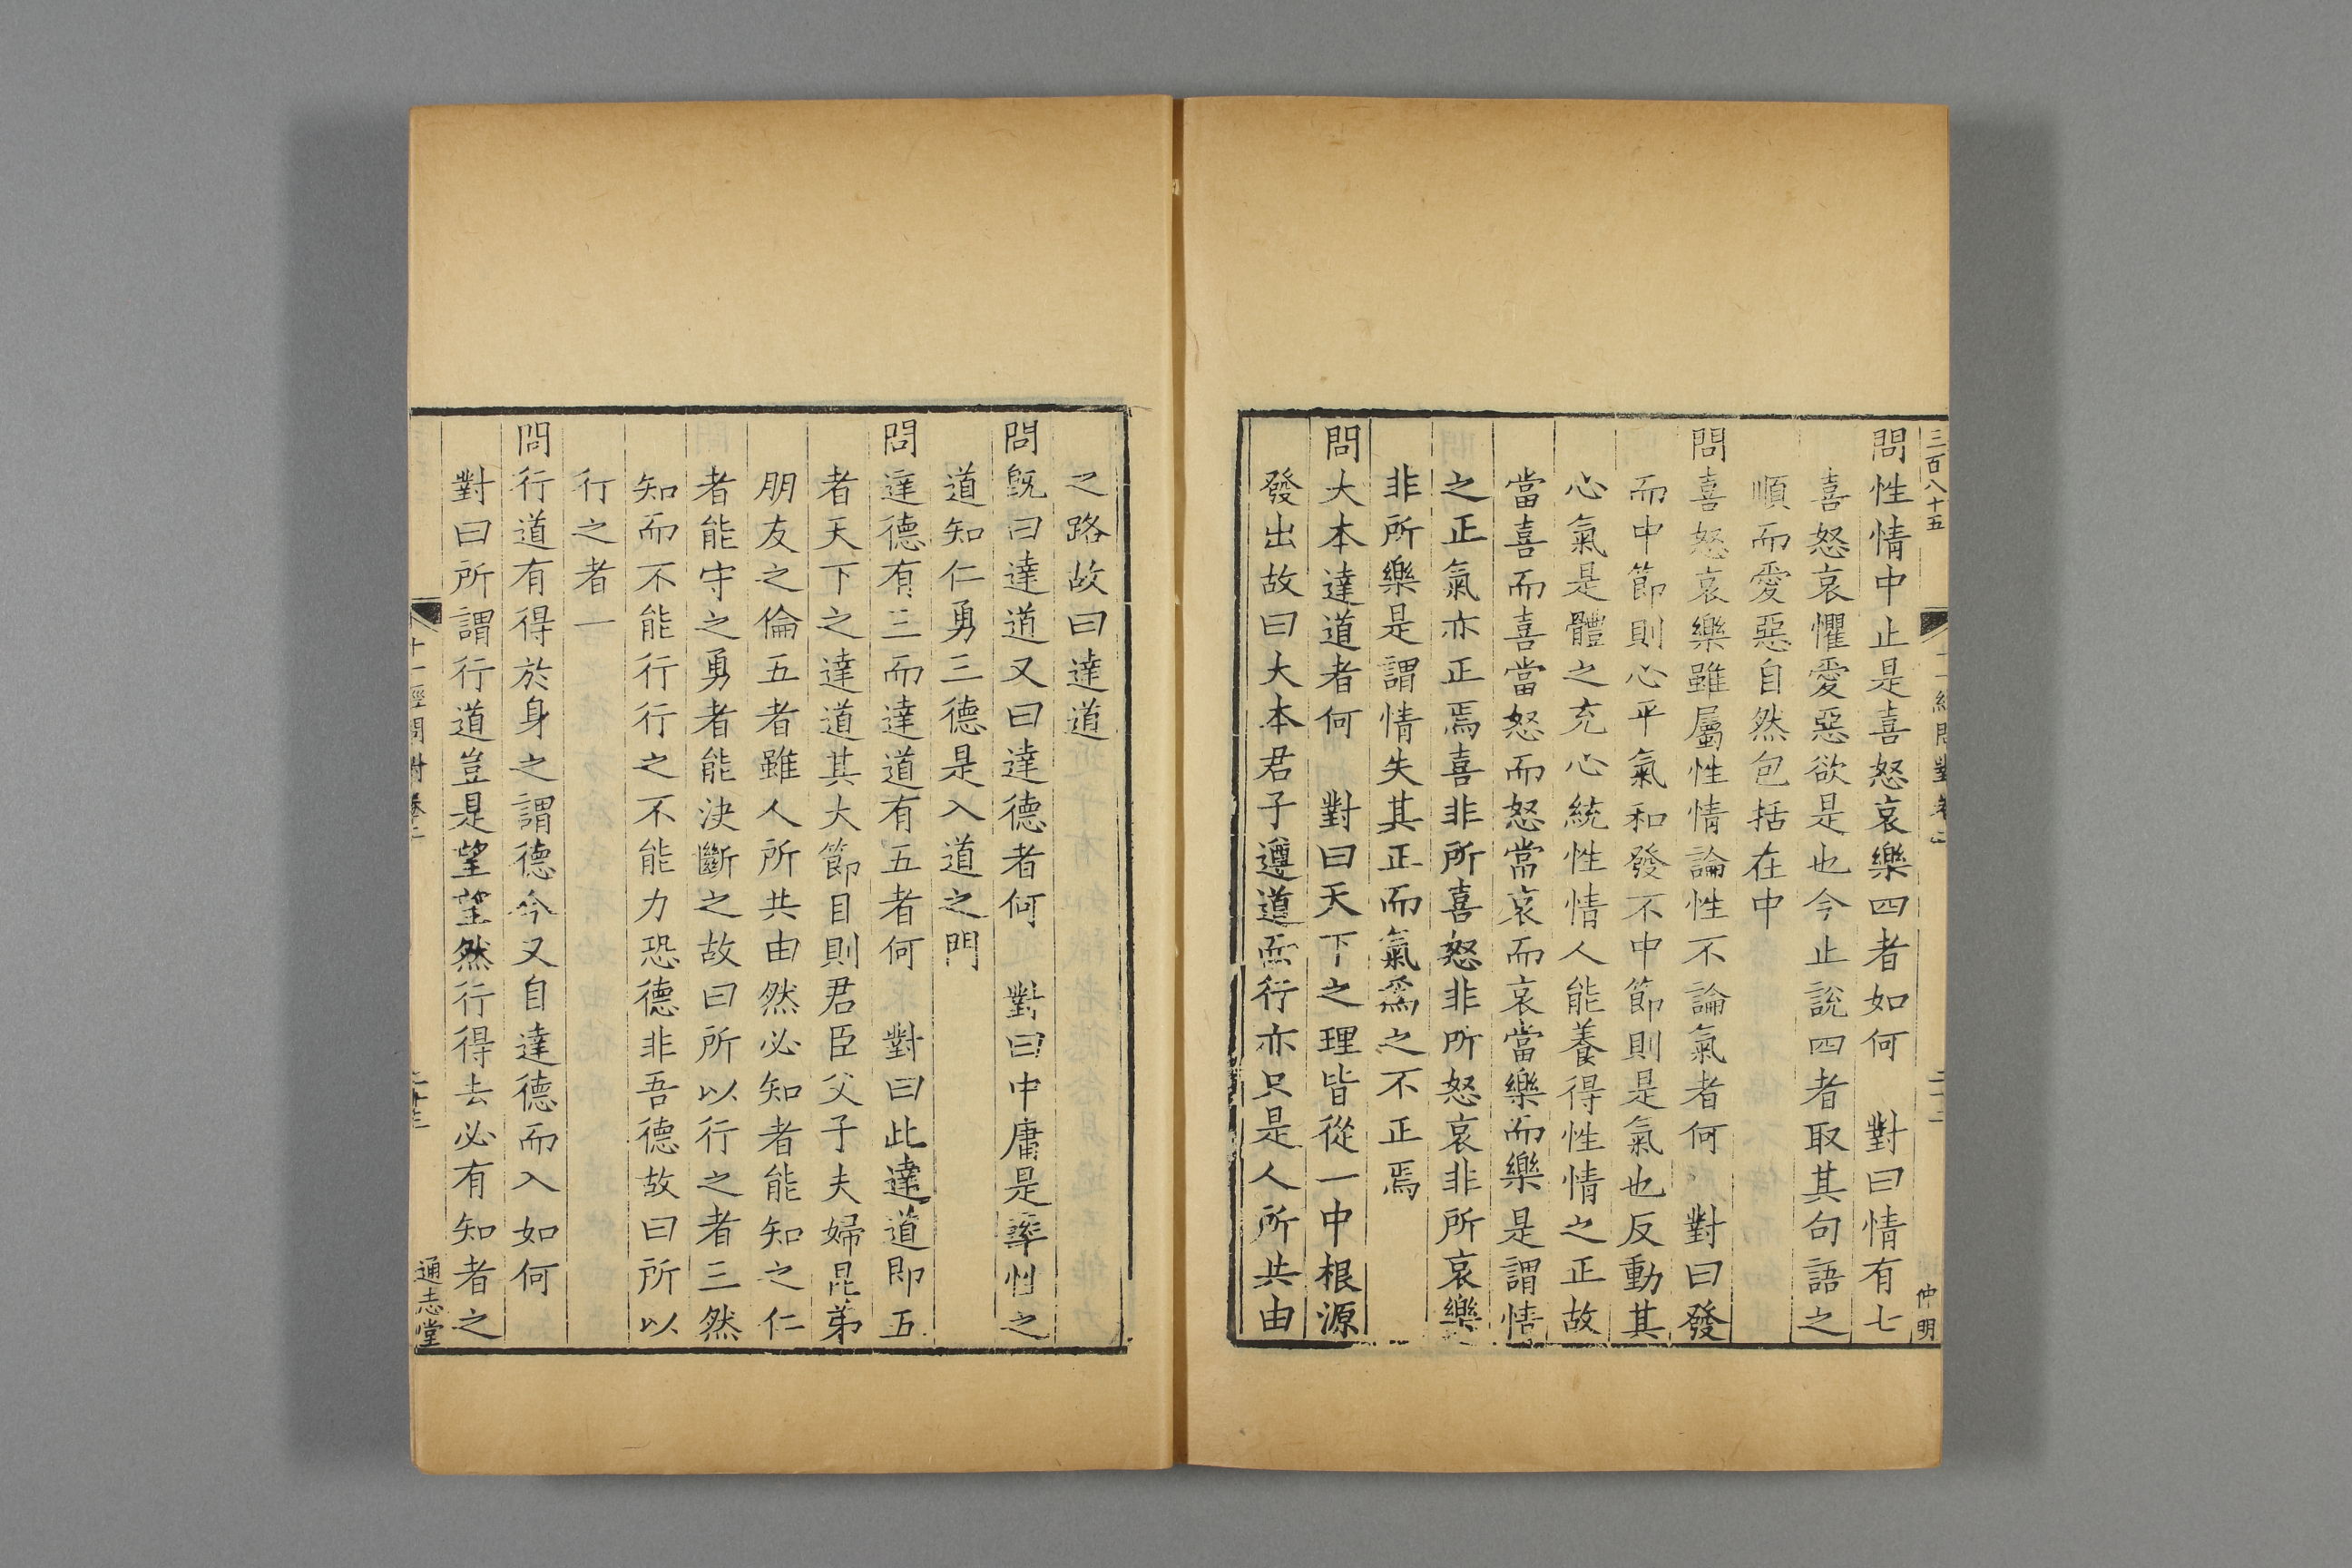 三百八十五
十一經問對卷二
二十二
仲明
問性情中止是喜怒哀樂四者如何　對曰情有七
喜怒哀懼愛惡欲是也今止說四者取其句語之
順而愛惡自然包括在中
問喜怒哀樂雖屬性情論性不論氣者何　對曰發
而中節則心平氣和發不中節則是氣也反動其
心氣是體之充心統性情人能養得性情之正故
當喜而喜當怒而怒當哀而哀當樂而樂是謂情
之正氣亦正焉喜非所喜怒非所怒哀非所哀樂
非所樂是謂情失其正而氣爲之不正焉
問大本達道者何　對曰天下之理皆從一中根源
發出故曰大本君子遵道而行亦只是人所共由
之路故曰達道
問旣曰達道又曰達德者何　對曰中庸是率性之
道知仁勇三德是入道之門
問達德有三而達道有五者何　對曰此達道即五
者天下之達道其大節目則君臣父子夫婦昆弟
朋友之倫五者雖人所共由然必知者能知之仁
者能守之勇者能決斷之故曰所以行之者三然
知而不能行行之不能力恐德非吾德故曰所以
行之者一
問行道有得於身之謂德今又自達德而入如何
對曰所謂行道豈是望望然行得去必有知者之
十一經問對卷二
通志堂